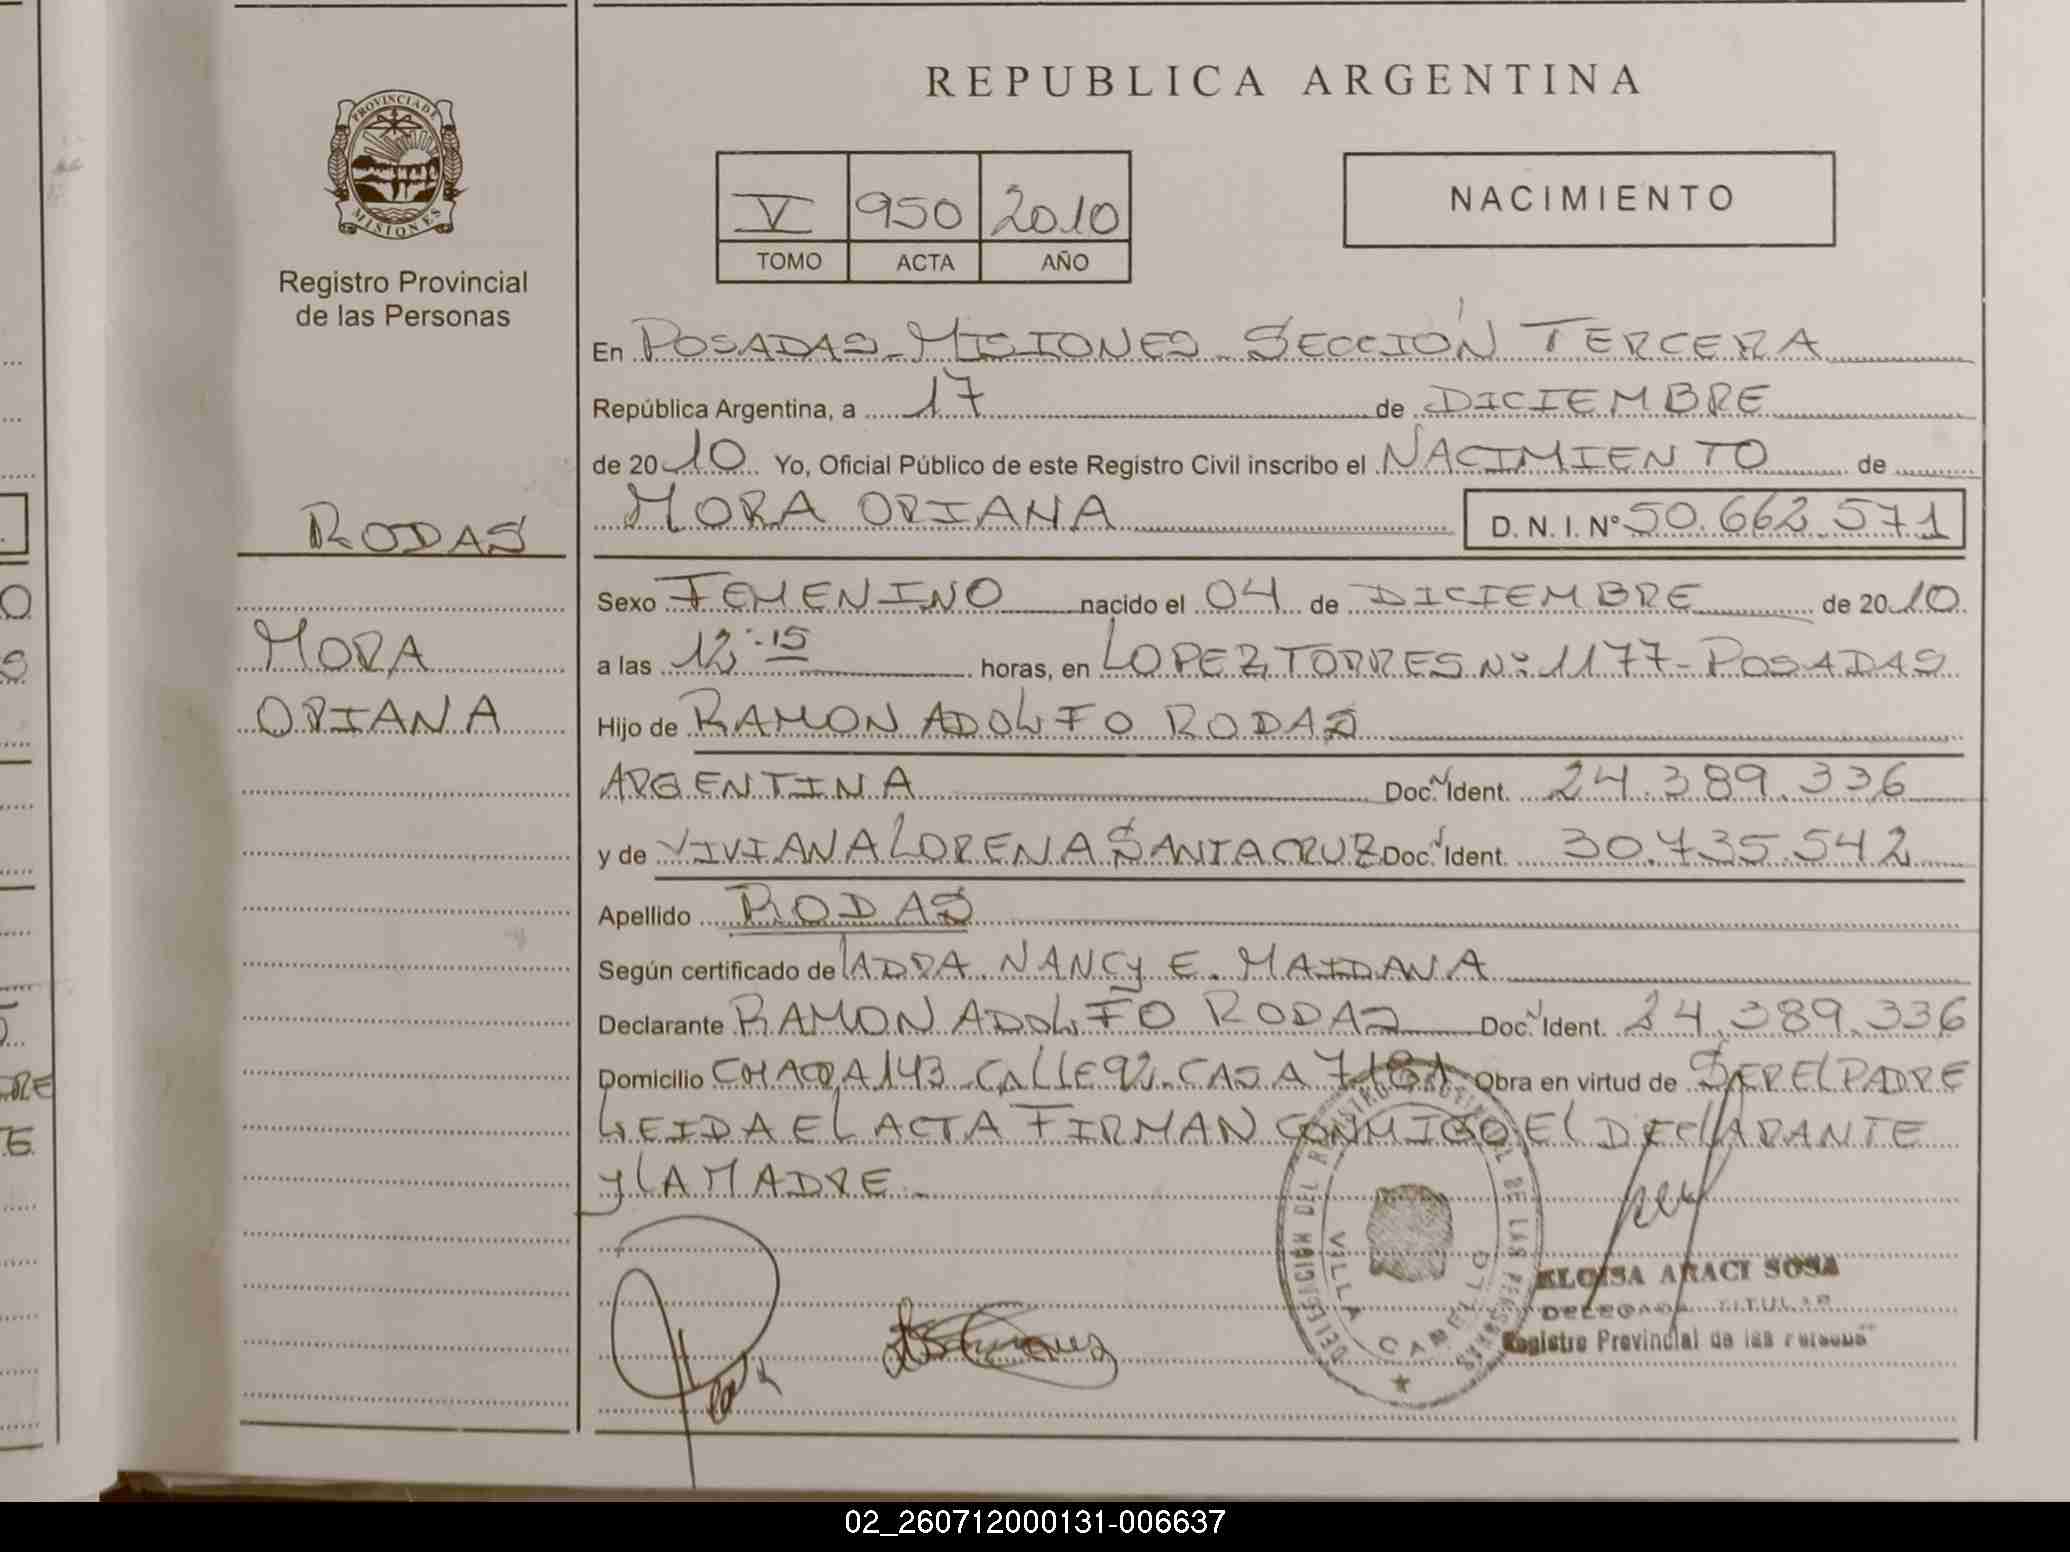 REPUBLICA ARGENTINA
PROVINCIA DE MISIONES
Registro Provincial
de las Personas
V 950 2010
TOMO ACTA AÑO
NACIMIENTO
En POSADAS-MISIONES SECCIÓN TERCERA
República Argentina, a 17 de DICIEMBRE
de 2010 Yo, Oficial Público de este Registro Civil inscribo el NACIMIENTO de
MORA ORIANA D.N.I. Nº 50.662.571
RODAS
MORA
ORIANA
Sexo FEMENINO nacido el 04 de DICIEMBRE de 2010
a las 12:15 horas, en LOPEZ TORRES Nº 1177-POSADAS
Hijo de RAMON ADOLFO RODAS
ARGENTINA Doc. Ident. 24.389.336
y de VIVIANA LORENA SANTACRUZ Doc. Ident. 30.735.542
Apellido RODAS
Según certificado de LA DRA. NANCY E. MAIDANA
Declarante RAMON ADOLFO RODAS Doc. Ident. 24.389.336
Domicilio CHACRA 143 CALLE 92 CASA 7181 Obra en virtud de SER EL PADRE
LEIDA EL ACTA FIRMAN CONMIGO EL DECLARANTE
y LA MADRE.-
DELEGACION DEL REGISTRO PROVINCIAL DE LAS PERSONAS
VILLA CABELLO
ELOISA ARACI SOSA
DELEGADA TITULAR
Registro Provincial de las Personas
02_260712000131-006637